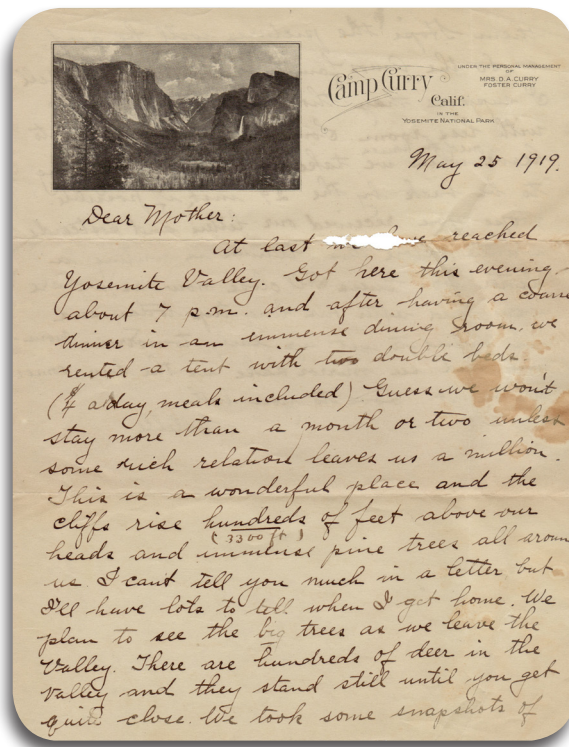 Camp Curry
Calif.
IN THE
YOSEMITE NATIONAL PARK
UNDER THE PERSONAL MANAGEMENT
OF
MRS. D. A. CURRY
FOSTER CURRY
May 25 1919.
Dear Mother:
At last we have reached
Yosemite Valley. Got here this evening
about 7 p.m. and after having a
dinner in an immense dining room, we
rented a tent with two double beds
($4 a day, meals included) Guess we won't
stay more than a month or two unless
some rich relation leaves us a million.
This is a wonderful place and the
cliffs rise hundreds of feet above our
(3300 ft)
heads and immense pine trees all aroun
us. I cant tell you much in a letter but
I'll have lots to tell when I get home. We
plan to see the big trees as we leave the
Valley. There are hundreds of deer in the
valley and they stand still until you get
quite close. We took some snapshots of